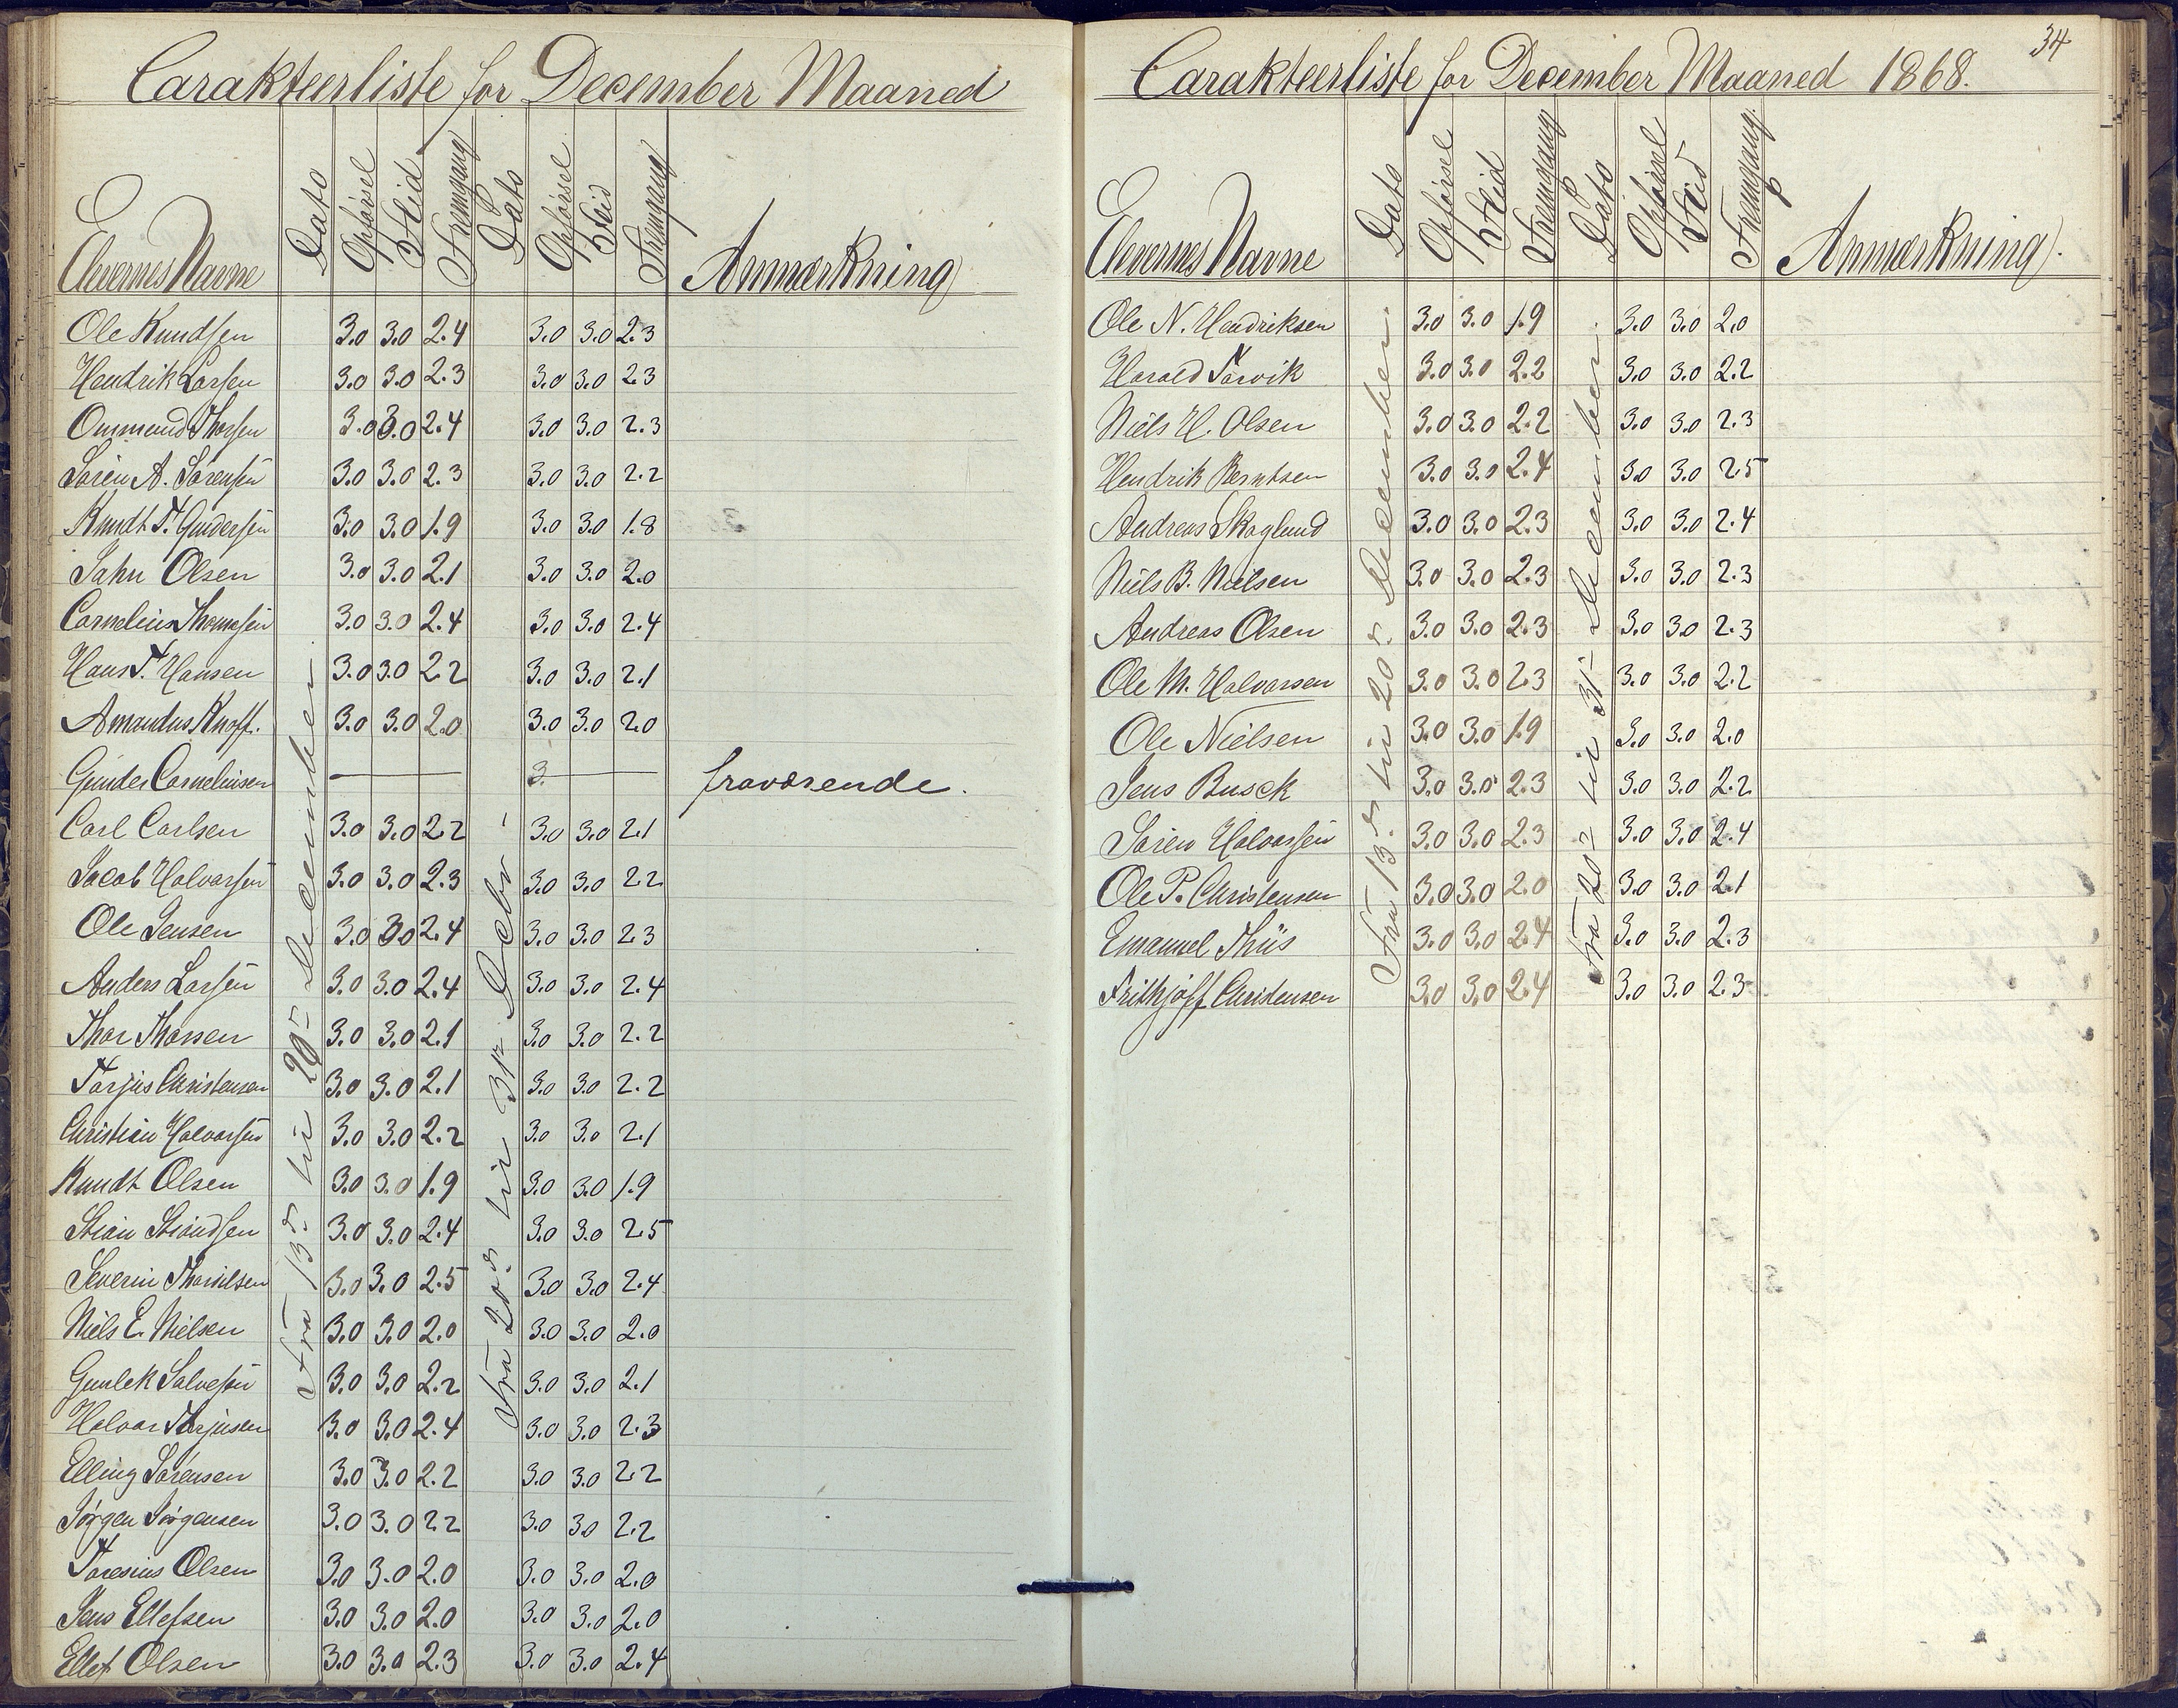 Carakteerliste for December Maaned
Elevernes Navne Dato Opførsel Flid Fremgang Dato Opførsel Flid Fremgang Anmærkning
Fra 13de til 20de December
Fra 20de til 31te Decbr
Ole Knudsen 3.0 3.0 2.4 3.0 3.0 2.3
Hendrik Larsen 3.0 3.0 2.3 3.0 3.0 2.3
Ommund Thorsen 3.0 3.0 2.4 3.0 3.0 2.3
Søren A. Sørensen 3.0 3.0 2.3 3.0 3.0 2.2
Knudt T. Gundersen 3.0 3.0 1.9 3.0 3.0 1.8
Jahn Olsen 3.0 3.0 2.1 3.0 3.0 2.0
Cornelius Thomesen 3.0 3.0 2.4 3.0 3.0 2.4
Hans T. Hansen 3.0 3.0 2.2 3.0 3.0 2.1
Amandus Knoff. 3.0 3.0 2.0 3.0 3.0 2.0
Gunder Corneliusen — 3. — fraværende.
Carl Carlsen 3.0 3.0 2.2 3.0 3.0 2.1
Jacob Halvorsen 3.0 3.0 2.3 3.0 3.0 2.2
Ole Jensen 3.0 3.0 2.4 3.0 3.0 2.3
Anders Larsen 3.0 3.0 2.4 3.0 3.0 2.4
Thor Thorsen 3.0 3.0 2.1 3.0 3.0 2.2
Tarjus Christensen 3.0 3.0 2.1 3.0 3.0 2.2
Christian Halvorsen 3.0 3.0 2.2 3.0 3.0 2.1
Knudt Olsen 3.0 3.0 1.9 3.0 3.0 1.9
Stian Stiandsen 3.0 3.0 2.4 3.0 3.0 2.5
Severin 3.0 3.0 2.5 3.0 3.0 2.4
Niels E. Nielsen 3.0 3.0 2.0 3.0 3.0 2.0
Gunlek Salvesen 3.0 3.0 2.2 3.0 3.0 2.1
Halvor Tarjusen 3.0 3.0 2.4 3.0 3.0 2.3
Elling Sørensen 3.0 3.0 2.2 3.0 3.0 2.2
Jørgen Jørgensen 3.0 3.0 2.2 3.0 3.0 2.2
Taresius Olsen 3.0 3.0 2.0 3.0 3.0 2.0
Jens Ellefsen 3.0 3.0 2.0 3.0 3.0 2.0
Ellef Olsen 3.0 3.0 2.3 3.0 3.0 2.4
34
Carakteerliste for December Maaned 1868.
Elevernes Navne Dato Opførsel Flid Fremgang Dato Opførsel Flid Fremgang. Anmærkning.
Fra 13de til 20de December.
Fra 20de til 31te December.
Ole N. Hendriksen 3.0 3.0 1.9 3.0 3.0 2.0
Harald Narvik 3.0 3.0 2.2 3.0 3.0 2.2
Niels H. Olsen 3.0 3.0 2.2 3.0 3.0 2.3
Hendrik Berntsen 3.0 3.0 2.4 3.0 3.0 2.5
Andreas Skoglund 3.0 3.0 2.3 3.0 3.0 2.4
Niels B. Nielsen 3.0 3.0 2.3 3.0 3.0 2.3
Andreas Olsen 3.0 3.0 2.3 3.0 3.0 2.3
Ole M. Halvorsen 3.0 3.0 2.3 3.0 3.0 2.2
Ole Nielsen 3.0 3.0 1.9 3.0 3.0 2.0
Jens Busck 3.0 3.0 2.3 3.0 3.0 2.2
Søren Halvorsen 3.0 3.0 2.3 3.0 3.0 2.4
Ole P. Christensen 3.0 3.0 2.0 3.0 3.0 2.1
Emanuel Thiis 3.0 3.0 2.4 3.0 3.0 2.3
Frithjoff Christensen 3.0 3.0 2.4 3.0 3.0 2.3